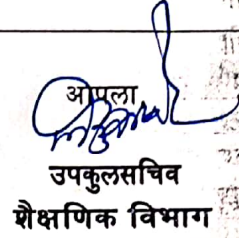 आपला
उपकुलसचिव
शैक्षणिक विभाग